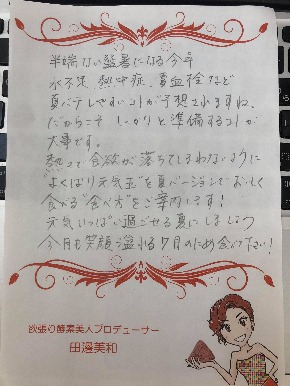 半端ない猛暑になる今年
水不足、熱中症、夏血栓など
夏バテしやすいコトが予想されますね、
だからこそ しっかりと準備するコトが
大事です。
熱さで食欲が落ちてしまわないように
よくばり元気玉"を夏バージョンでおいしく
食べる"食べ方"をご案内します!
元気いっぱい過ごせる夏にしましょう
今月も笑顔溢れる7月のため食べて下さい!
欲張り酵素美人プロデューサー
田邊美和